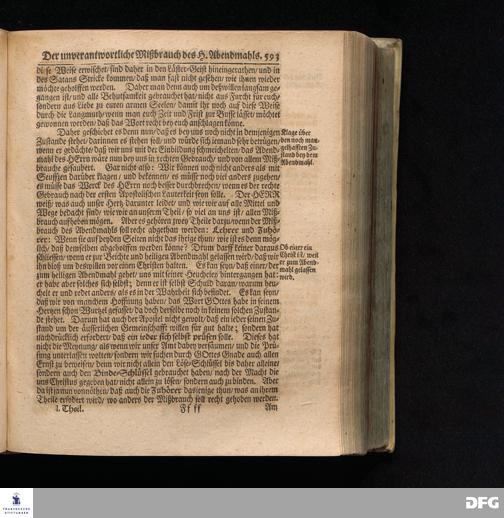 Der unverantwortliche Mißbrauch des H. Abendmahls. 593
diese Weise erwischet/ sind daher in den Läster-Geist hineingerathen/ und in
des Satans Stricke kommen/ daß man fast nicht gesehen/ wie ihnen wieder
möchte geholffen werden. Daher man denn auch um deßwillen langsam ge-
gangen ist/ und alle Behutsamkeit gebrauchet hat/ nicht aus Furcht für euch/
sondern aus Liebe zu euren armen Seelen/ damit ihr noch auf diese Weise
durch die Langmuth/ wenn man euch Zeit und Frist zur Busse lässet/ möchtet
gewonnen werden/ daß das Wort recht bey euch anschlagen könne.
Daher geschiehet es denn nun/ daß es bey uns noch nicht in demjenigen
Zustande stehet/ darinnen es stehen soll/ und würde sich jemand sehr betrügen/
wenn er gedächte/ daß wir uns mit der Einbildung schmeichelten/ das Abend-
mahl des HErrn wäre nun bey uns in rechten Gebrauch/ und von allem Miß-
brauche gesaubert. Gar nicht also: Wir können noch nicht anders als mit
Seufftzen darüber klagen/ und bekennen/ es müsse noch viel anders zugehen/
es müsse das Werck des HErrn noch besser durchbrechen/ wenn es der rechte
Gebrauch nach der ersten Apostolischen Lauterkeit seyn solle. Der HERR
weiß/ was auch unser Hertz darunter leidet/ und wie wir auf alle Mittel und
Wege bedacht sind/ wie wir an unserm Theil/ so viel an uns ist/ allen Miß-
brauch aufheben mögen. Aber es gehören zwey Theile darzu/ wenn der Miß-
brauch des Abendmahls soll recht abgethan werden: Lehrer und Zuhö-
rer: Wenn sie auf beyden Seiten nicht das ihrige thun/ wie ist es denn mög-
lich/ daß demselben abgeholffen werden könne? Drum darff keiner daraus
schliessen/ wenn er zur Beichte und heiligen Abendmahl gelassen wird/ daß wir
ihn bloß um deßwillen vor einen Christen halten. Es kan seyn/ daß einer/ der
zum heiligen Abendmahl gehet/ uns mit seiner Heucheley hintergangen hat:
er habe aber solches sich selbst; denn er ist selbst Schuld daran/ warum heu-
chelt er und redet anders/ als es in der Wahrheit sich befindet. Es kan seyn/
daß wir von manchen Hoffnung haben/ das Wort GOttes habe in seinem
Hertzen schon Wurtzel gefasset/ da doch derselbe noch in keinem solchen Zustan-
de stehet. Darum hat auch der Apostel nicht gewolt/ daß ein ieder seinen Zu-
stand um der äusserlichen Gemeinschafft willen für gut halte; sondern hat
nachdrücklich erfordert/ daß ein ieder sich selbst prüfen solle. Dieses hat
nicht die Meynung/ als wenn wir unser Amt dabey versäumen/ und die Prü-
fung unterlassen wolten/ sondern wir suchen durch GOttes Gnade auch allen
Ernst zu beweisen/ denn wir nicht allein den Löse-Schlüssel bis daher alleine/
sondern auch den Binde-Schlüssel gebrauchet haben/ nach der Macht die
uns Christus gegeben hat/ nicht allein zu lösen/ sondern auch zu binden. Aber
da ist ja nun vonnöthen/ daß auch die Zuhörer dasjenige thun/ was an ihrem
Theile erfodert wird/ wo anders der Mißbrauch soll recht gehoben werden.
I. Theil. Ff ff Am
Klage über
den noch man-
gelhafften Zu-
stand bey dem
Abendmahl.
Ob einer ein
Christ ist/ weil
er zum Abend-
mahl gelassen
wird.
FRANCKESCHE
STIFTUNGEN
DFG